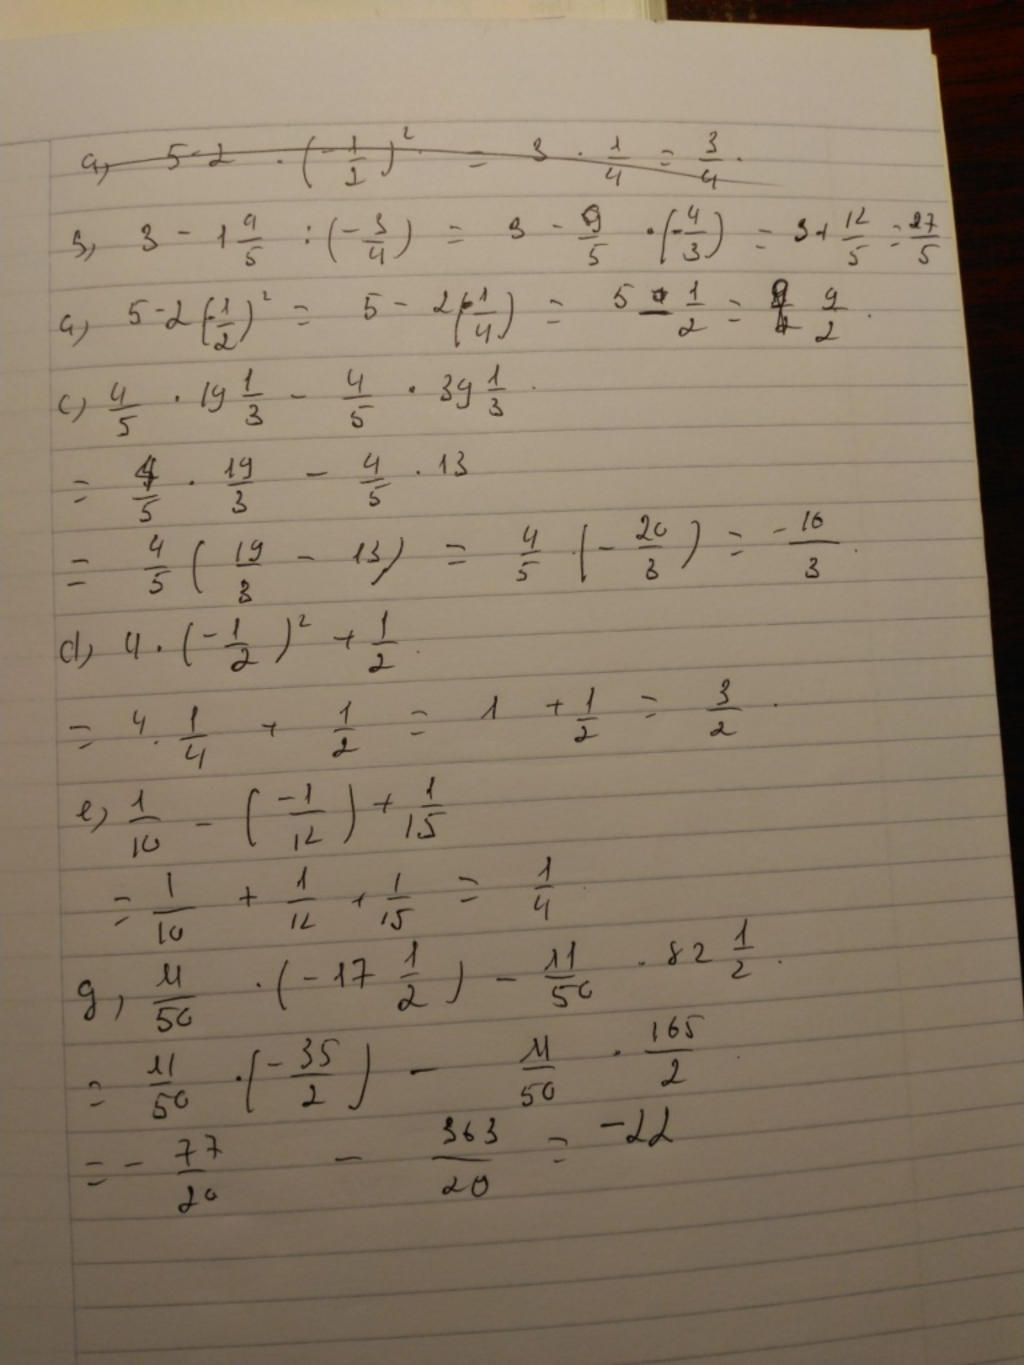 a, 5-2 · (-1/2)² = 3 · 1/4 = 3/4.
b, 3 - 1 4/5 : (-3/4) = 3 - 9/5 · (-4/3) = 3 + 12/5 = 27/5
a, 5-2(-1/2)² = 5 - 2(1/4) = 5 - 1/2 = 9/2.
c) 4/5 · 19 1/3 - 4/5 · 39 1/3.
= 4/5 · 19/3 - 4/5 · 13
= 4/5 (19/3 - 13) = 4/5 · (-20/3) = -16/3.
d, 4 · (-1/2)² + 1/2.
= 4 · 1/4 + 1/2 = 1 + 1/2 = 3/2.
e, 1/10 - (-1/12) + 1/15
= 1/10 + 1/12 + 1/15 = 1/4.
g, 11/50 · (-17 1/2) - 11/50 · 82 1/2.
= 11/50 · (-35/2) - 11/50 · 165/2.
= - 77/20 - 363/20 = -22